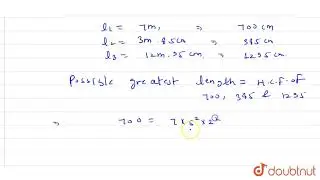 l₁ = 7m, ⇒ 700 cm
l₂ = 3m 85cm ⇒ 385cm
l₃ = 12m. 95 cm, ⇒ 1295cm.
Possible greatest length = H.C.F of
700, 385 & 1295
⇒ 700 = 7 × 5² × 2²
doubtnut